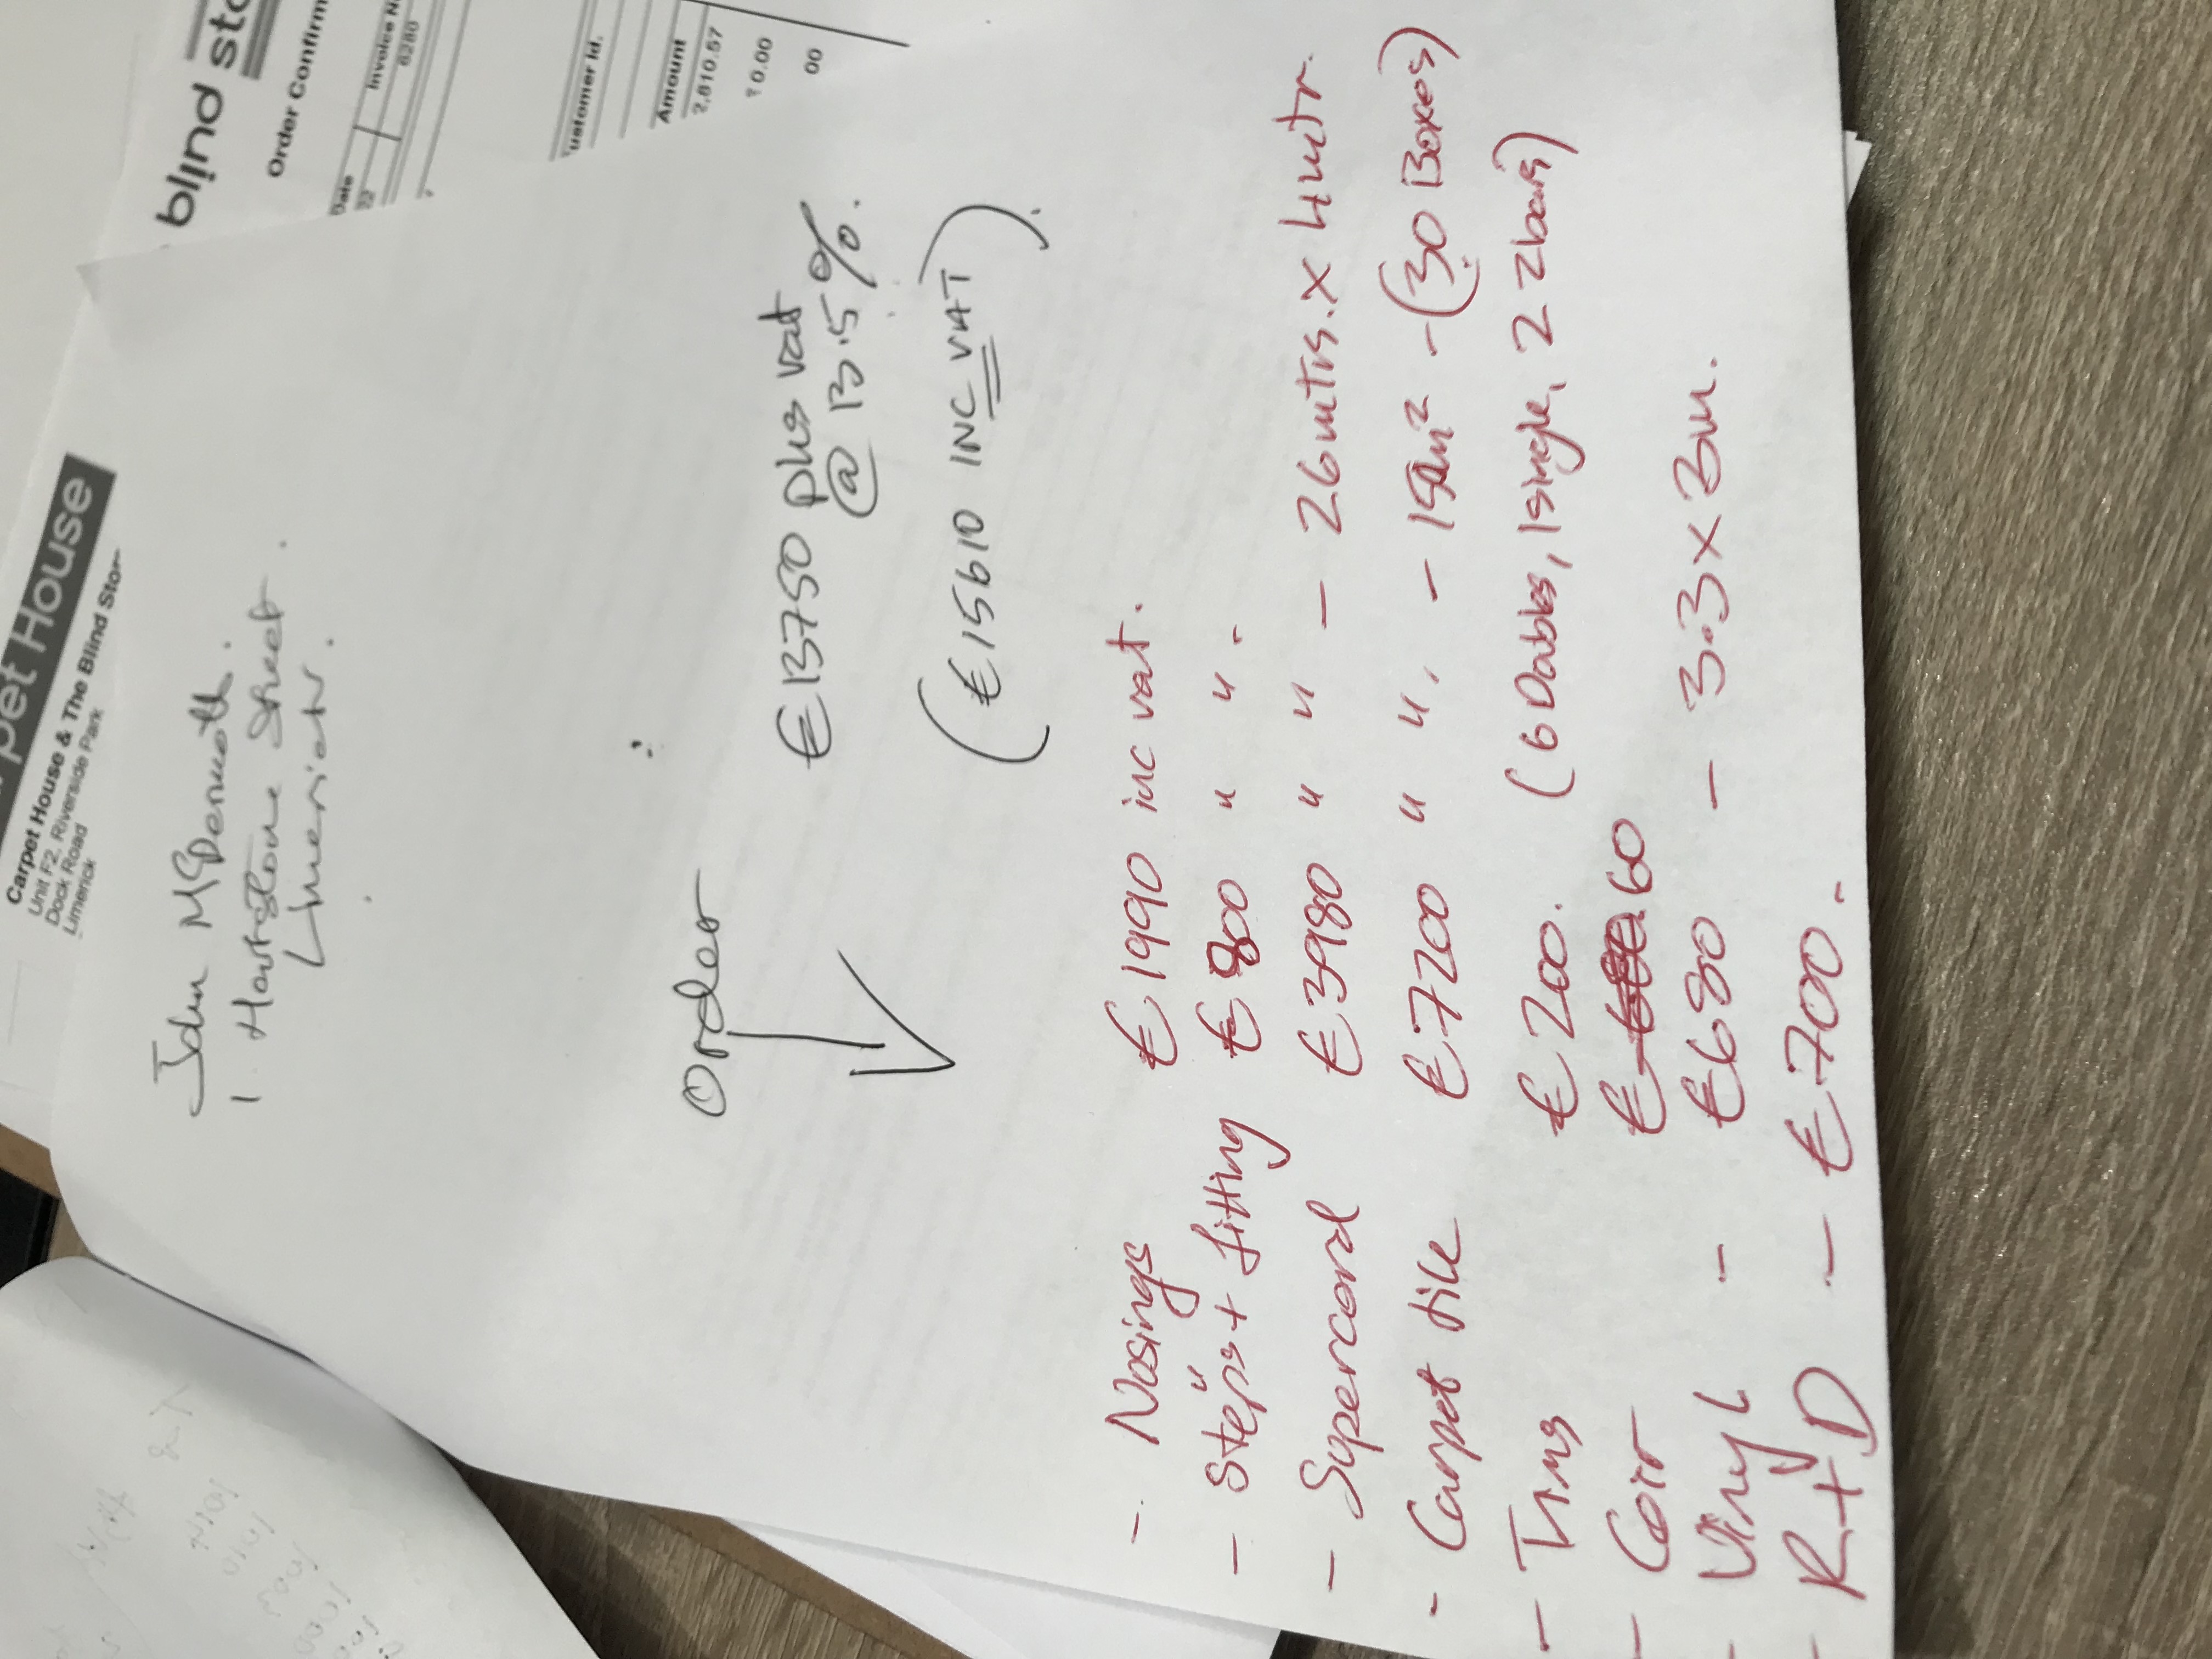 pet House
Carpet House & The Blind Stor
Unit F2, Riverside Park
Dock Road
Limerick
blind sto
Order Confirm
Date
Invoice N
22
6280
ustomer Id.
Amount
2,810.57
₹0.00
00
John McDermott.
1 Hartstone Street.
Limerick.
Order
€13750 plus vat
@ 13.5%.
(€15610 INC VAT).
- Nosings €1990 inc vat.
- Steps + fitting €800 " " .
- Supercord €3980 " " - 26mtrs. x 4mtr.
- Carpet tile €7200 " " , - 150m² - (30 Boxes)
- Tins €200. (6 Doubles, 1 single, 2 Zbars)
- Coir € 60
- Vinyl - €680 - 3.3 x 3m.
- R+D - €700.